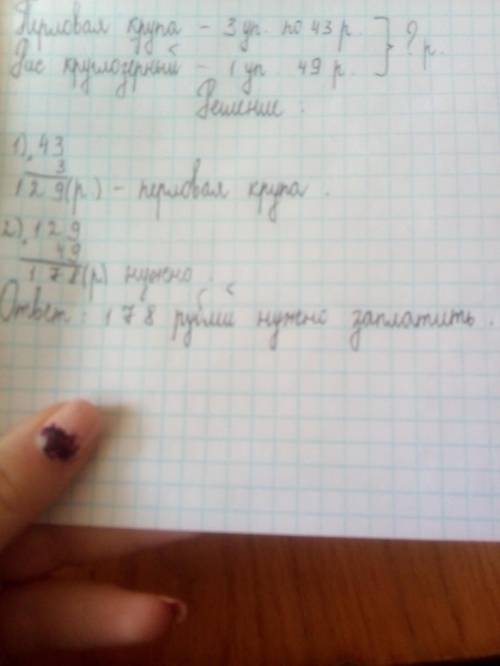 Перловая крупа - 3 уп. по 43 р. } ? р.
Рис круглозерный - 1 уп 49 р.
Решение.
1) . 43
3
129(р) - перловая крупа.
2) , 129
49
178(р) нужно.
Ответ: 178 рублй нужно заплатить.